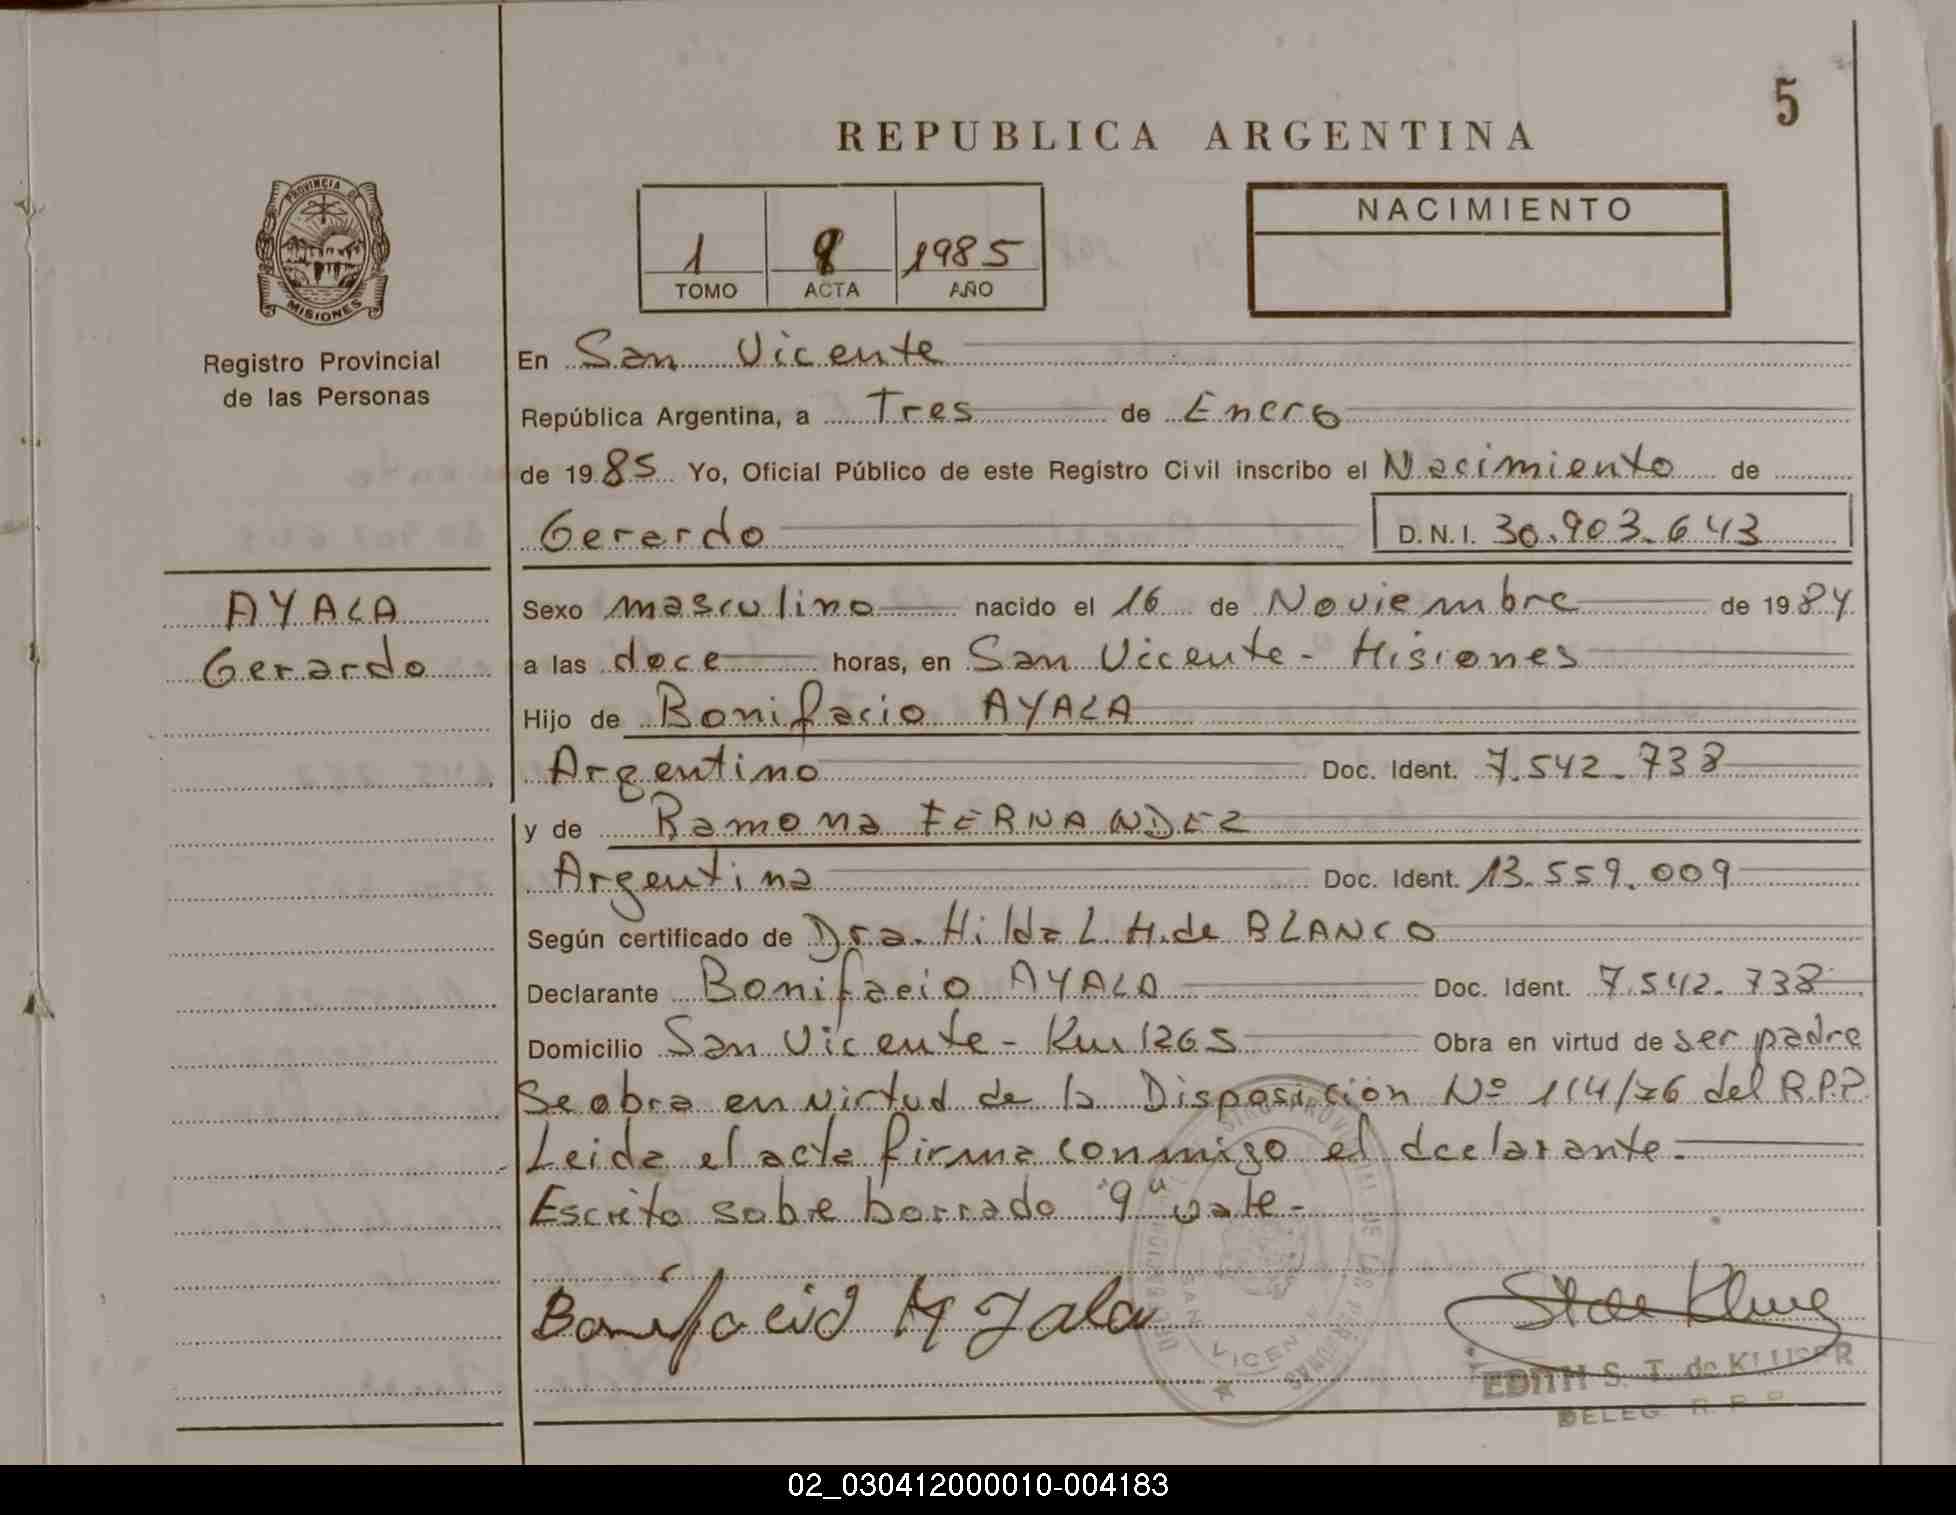 5
REPUBLICA ARGENTINA
PROVINCIA DE
MISIONES
Registro Provincial
de las Personas
1 9 1985
TOMO ACTA AÑO
NACIMIENTO
En San Vicente
República Argentina, a Tres de Enero
de 1985 Yo, Oficial Público de este Registro Civil inscribo el Nacimiento de
Gerardo D.N.I. 30.903.643
AYALA
Gerardo
Sexo masculino nacido el 16 de Noviembre de 1984
a las doce horas, en San Vicente - Misiones
Hijo de Bonifacio AYALA
Argentino Doc. Ident. 7.542.738
y de Ramona FERNANDEZ
Argentina Doc. Ident. 13.559.009
Según certificado de Dra. Hilda L. H. de BLANCO
Declarante Bonifacio AYALA Doc. Ident. 7.542.738
Domicilio San Vicente - Km 1265 Obra en virtud de ser padre
Se obra en virtud de la Disposición Nº 114/76 del R.P.P.
Leida el acta firma conmigo el declarante.-
Escrito sobre borrado "9" vale-
Bonifacio Ayala
SAN VICENTE
EDITH S. T. de KLUSER
DELEG. R. P. P.
02_030412000010-004183